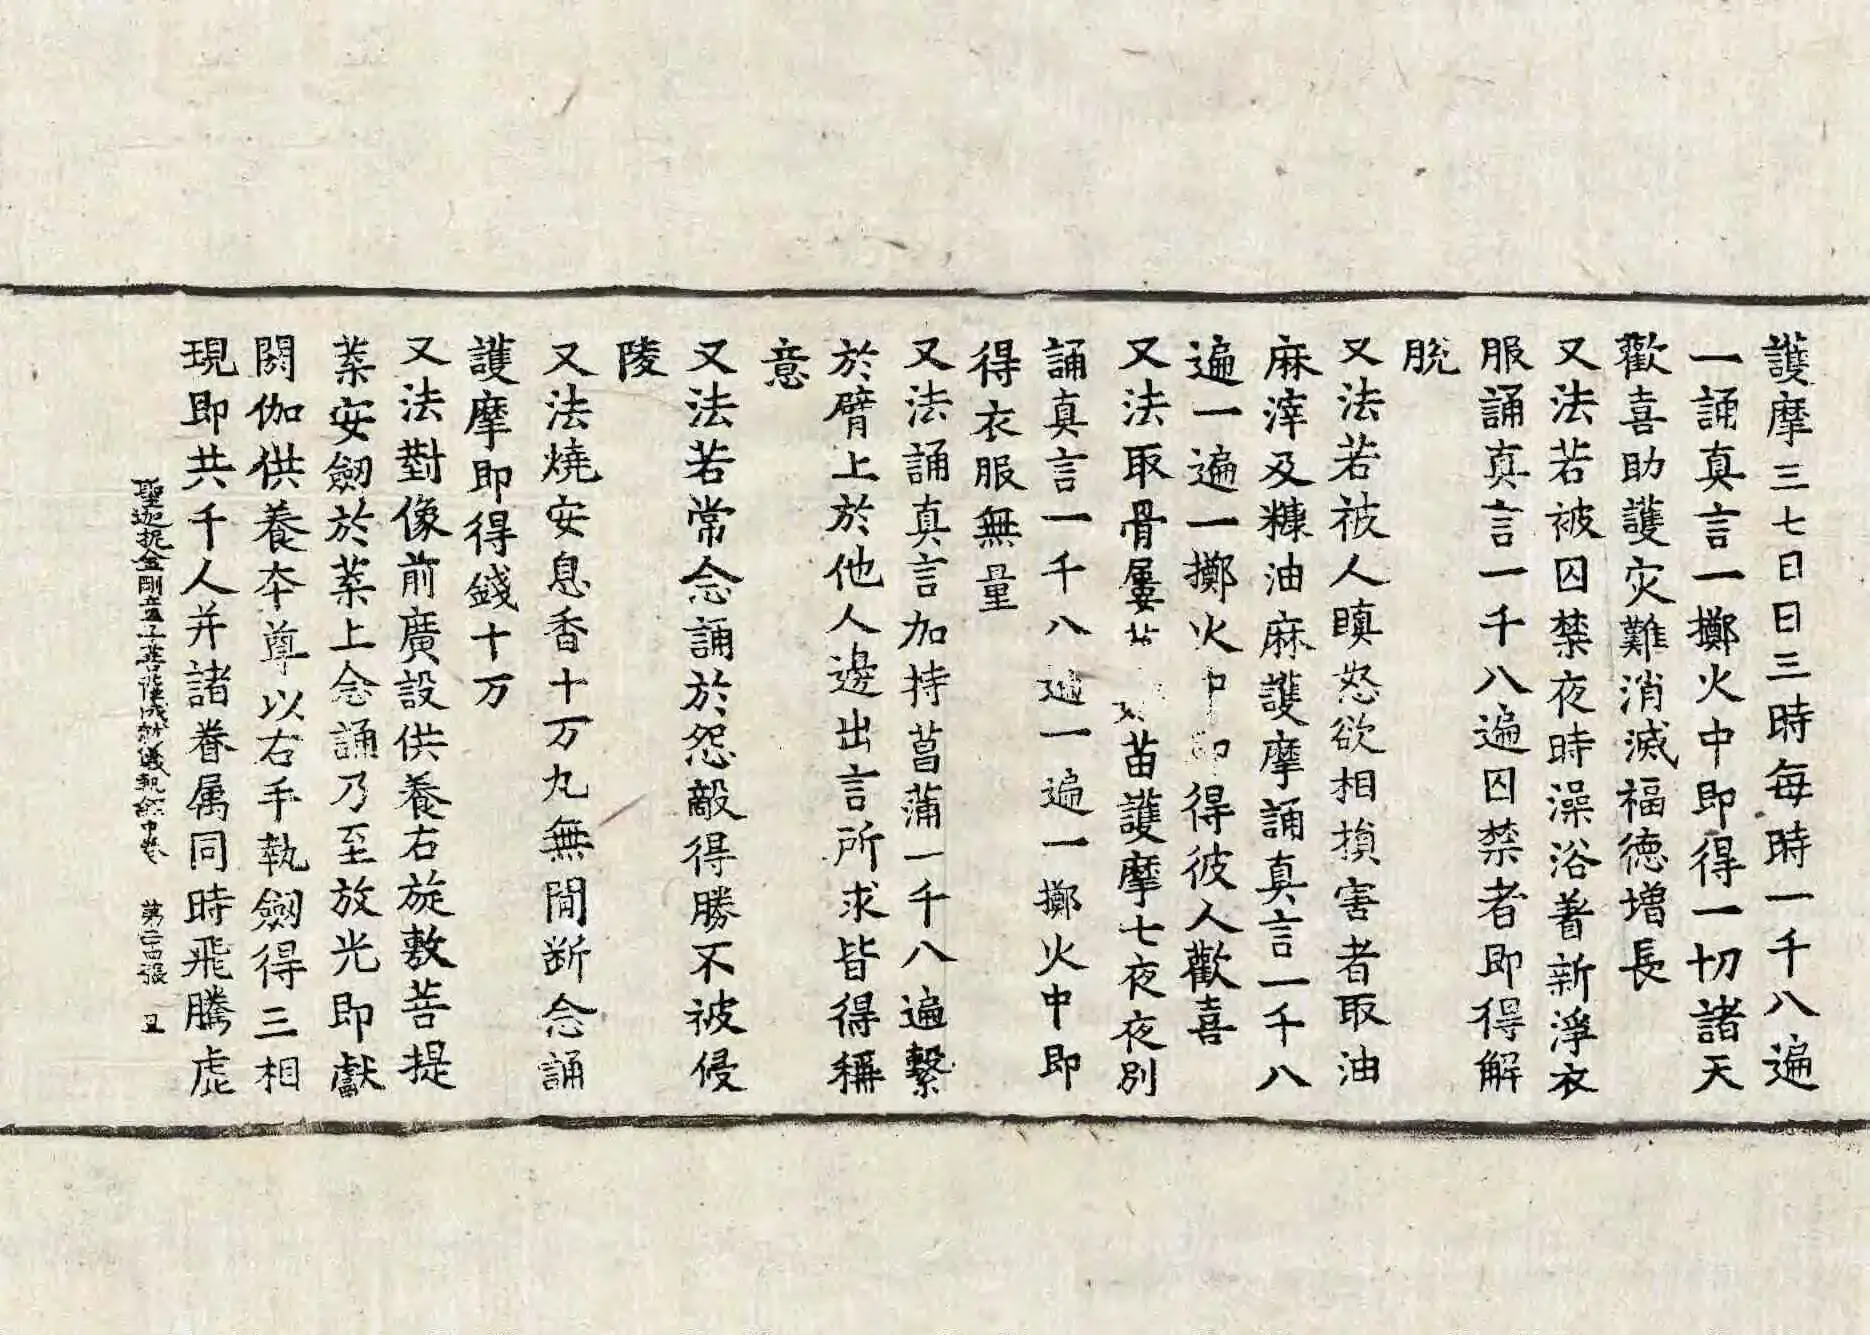 護摩三七日日三時每時一千八遍
一誦真言一擲火中即得一切諸天
歡喜助護灾難消滅福德增長
又法若被囚禁夜時澡浴著新淨衣
服誦真言一千八遍囚禁者即得解
脫
又法若被人瞋怒欲相損害者取油
麻滓及糠油麻護摩誦真言一千八
遍一遍一擲火中即得彼人歡喜
又法取骨屢苗護摩七夜夜別
誦真言一千八遍一遍一擲火中即
得衣服無量
又法誦真言加持菖蒲一千八遍繫
於臂上於他人邊出言所求皆得稱
意
又法若常念誦於怨敵得勝不被侵
陵
又法燒安息香十万丸無間断念誦
護摩即得錢十万
又法對像前廣設供養右旋敷菩提
葉安劒於葉上念誦乃至放光即獻
閼伽供養夲尊以右手執劒得三相
現即共千人并諸眷属同時飛騰虛
聖迦抳金剛童子菩薩成就儀軌經中卷 第二十四張 丑